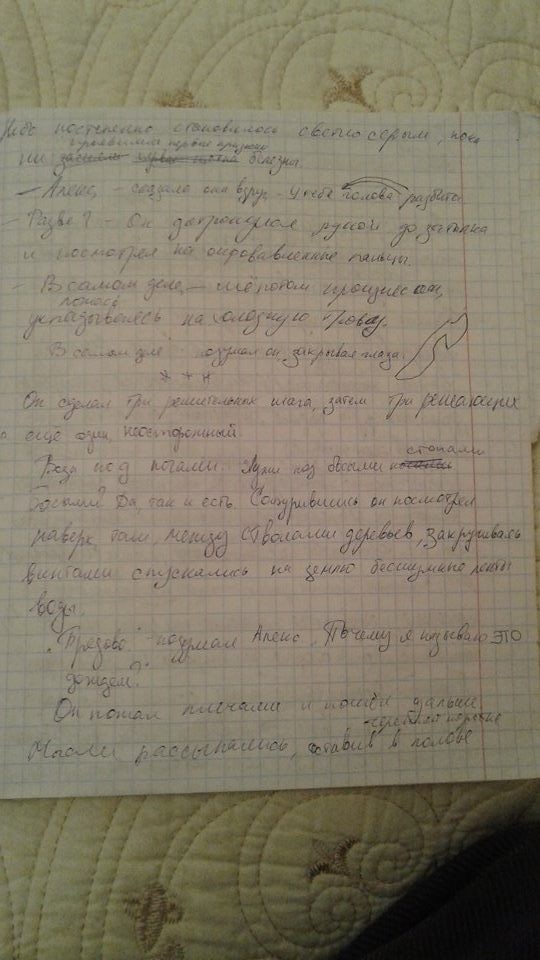 Небо постепенно становилось светло серым, пока
проявились первые признаки
ни болезни.
— Алекс, - сказала она вдруг - у тебя голова разбита
— Разве? - Он дотронулся рукой до затылка
и посмотрел на окровавленные пальцы.
- В самом деле, — шёпотом произнес он,
укладываясь на холодную траву.
В самом деле - подумал он, закрывая глаза.
***
Он сделал три решительных шага, затем три решающих
ещё один, неосторожный.
Вода под ногами. Лужи под босыми
стопами
Босыми? Да, так и есть. Сощурившись он посмотрел
наверх, там, между стволами деревьев, закручиваясь
винтами спускались на землю бесшумно ленты
воды.
„Трезово" - подумал Алекс „Почему я называю ЭТО
дождем?"
Он пожал плечами и пошёл дальше.
Мысли рассыпались, оставив в голове